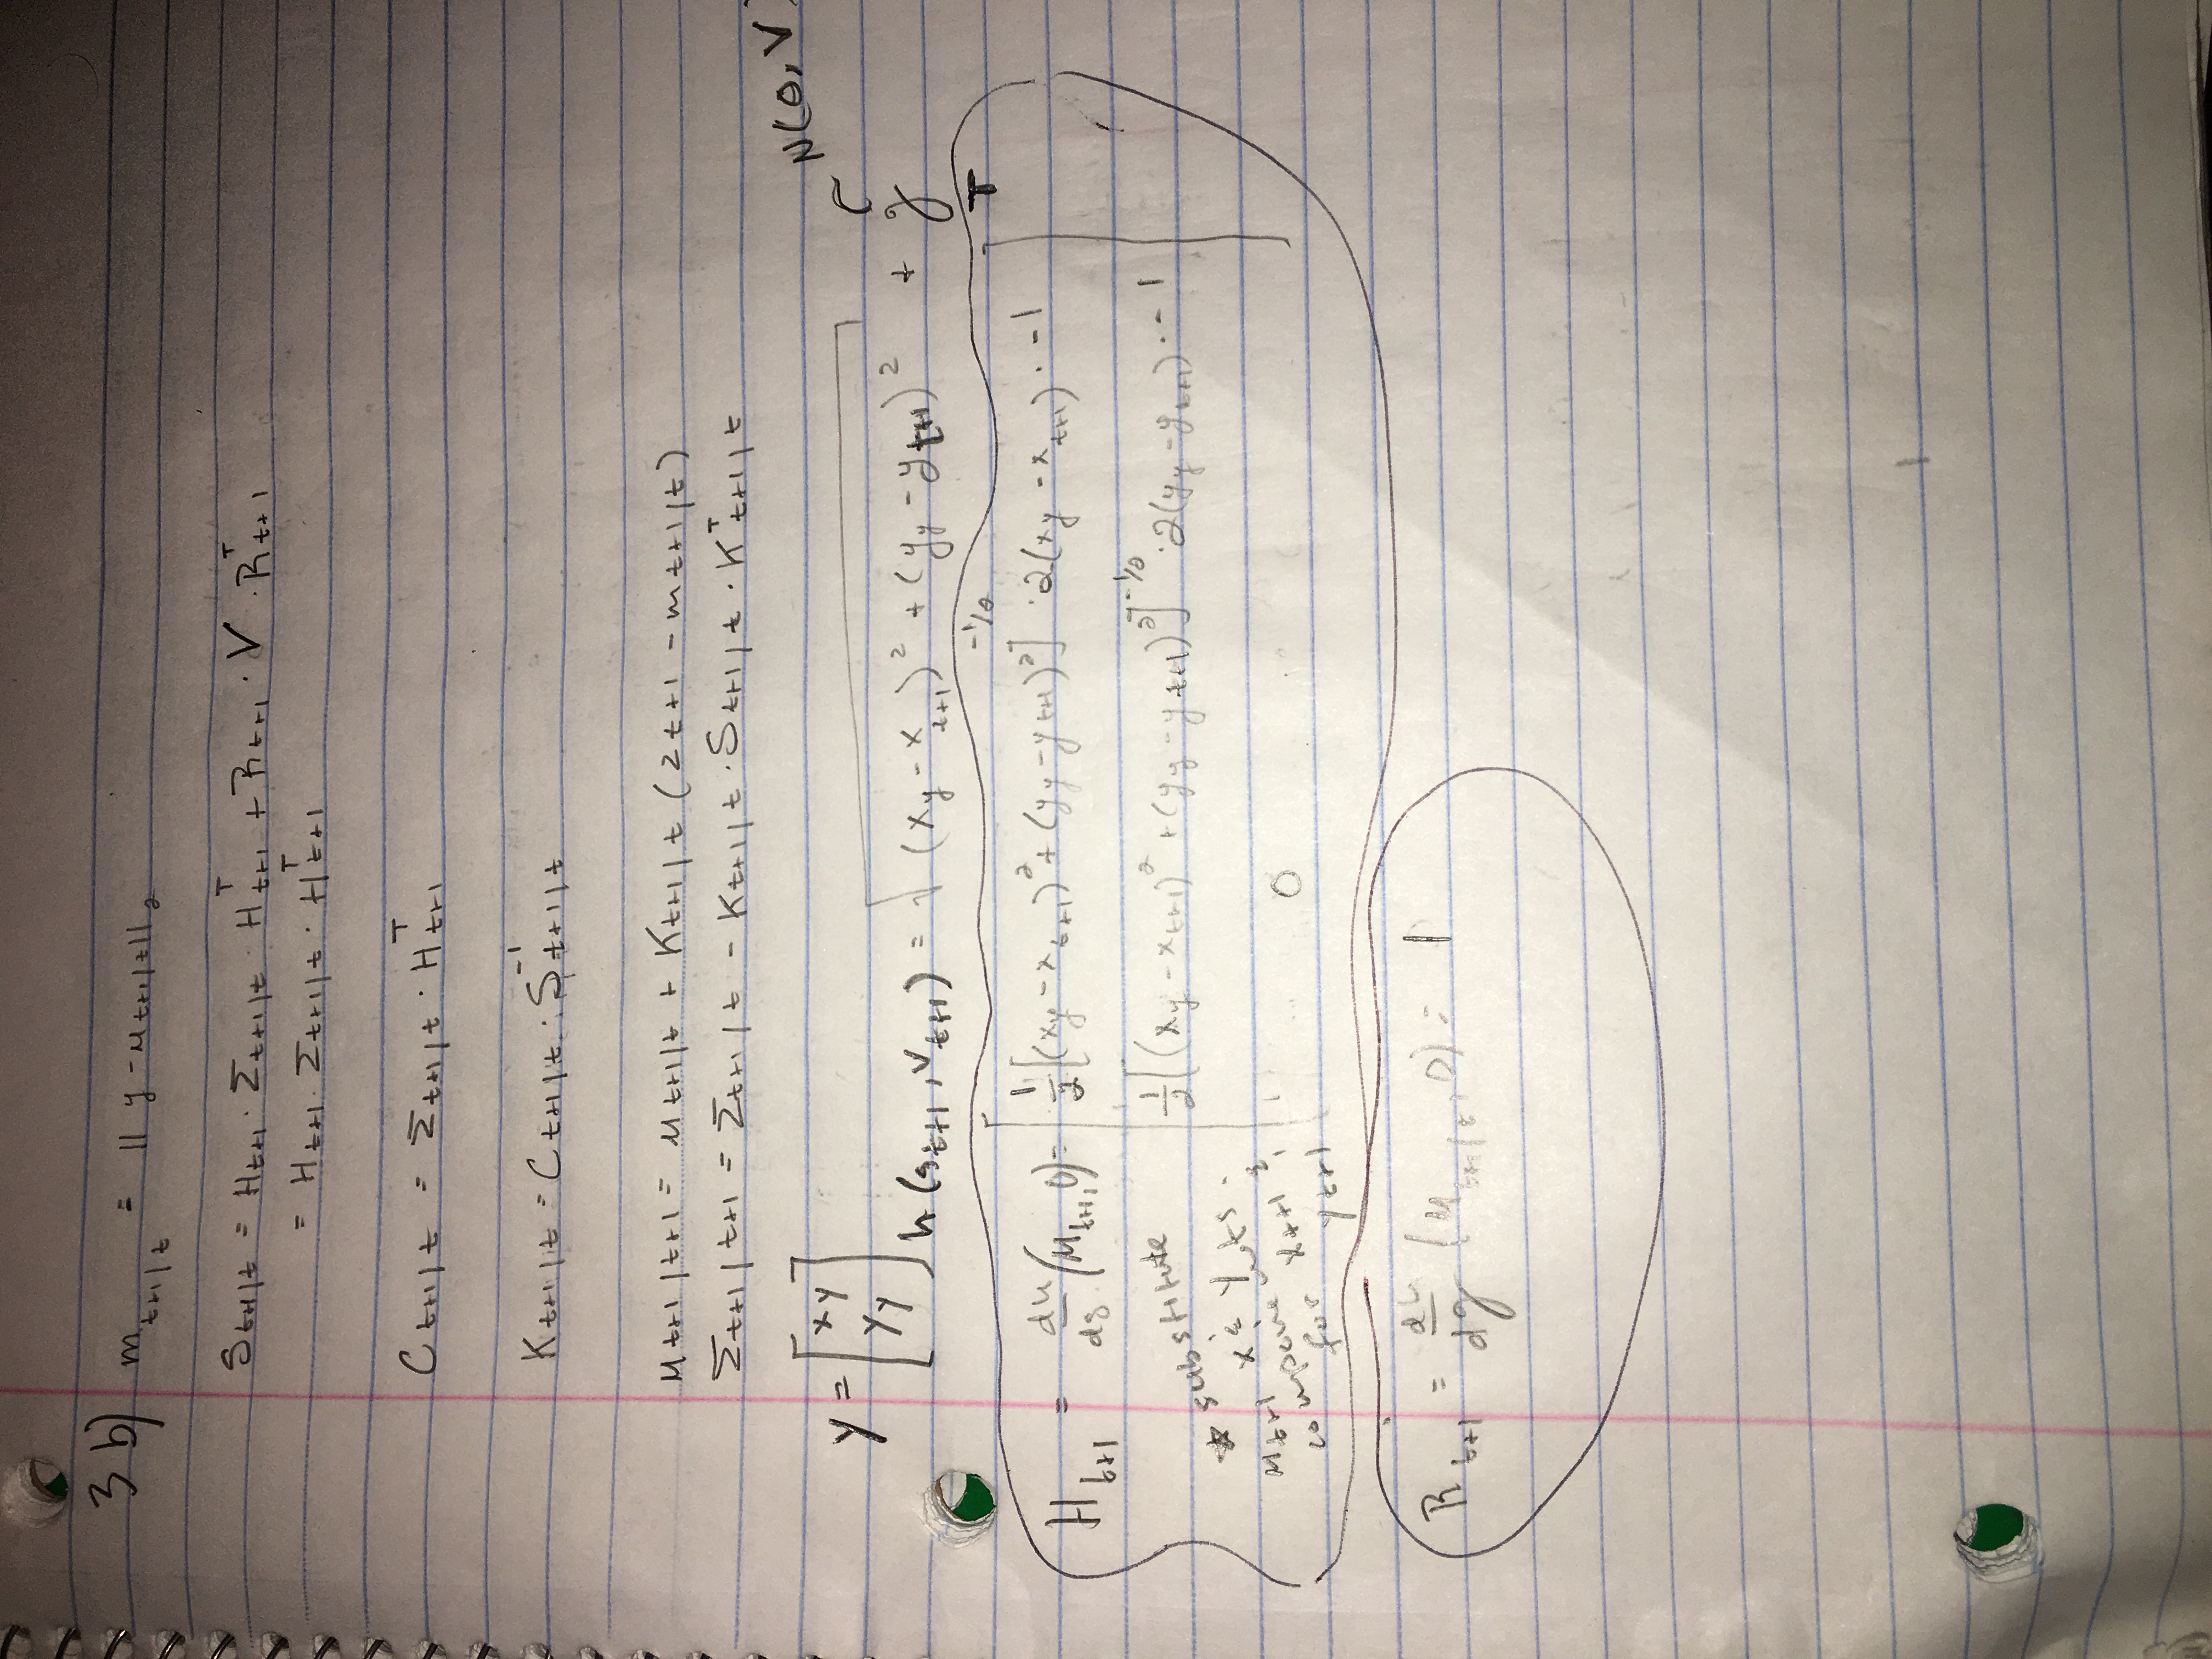 3 b) m_{t+1|t} = || y - μ_{t+1|t} ||_2
S_{t+1|t} = H_{t+1} · Σ_{t+1|t} · H^T_{t+1} + R_{t+1} · V · R^T_{t+1}
= H_{t+1} · Σ_{t+1|t} · H^T_{t+1}
C_{t+1|t} = Σ_{t+1|t} · H^T_{t+1}
K_{t+1|t} = C_{t+1|t} · S^{-1}_{t+1|t}
μ_{t+1|t+1} = μ_{t+1|t} + K_{t+1|t} (z_{t+1} - m_{t+1|t})
Σ_{t+1|t+1} = Σ_{t+1|t} - K_{t+1|t} · S_{t+1|t} · K^T_{t+1|t}
N(0, V)
y = [x_y
y_y]
h(s_{t+1}, v_{t+1}) = √((x_y - x_{t+1})^2 + (y_y - y_{t+1})^2) + g
H_{t+1} = dh/ds (μ_{t+1}, 0) = [1/2 [(x_y - x_{t+1})^2 + (y_y - y_{t+1})^2]^{-1/2} · 2(x_y - x_{t+1}) · -1
1/2 [(x_y - x_{t+1})^2 + (y_y - y_{t+1})^2]^{-1/2} · 2(y_y - y_{t+1}) · -1
0]^T
★ substitute
μ_{t+1} x & y
components
for x_{t+1} &
y_{t+1}
R_{t+1} = dh/dg (μ_{t+1|t}, 0) = 1